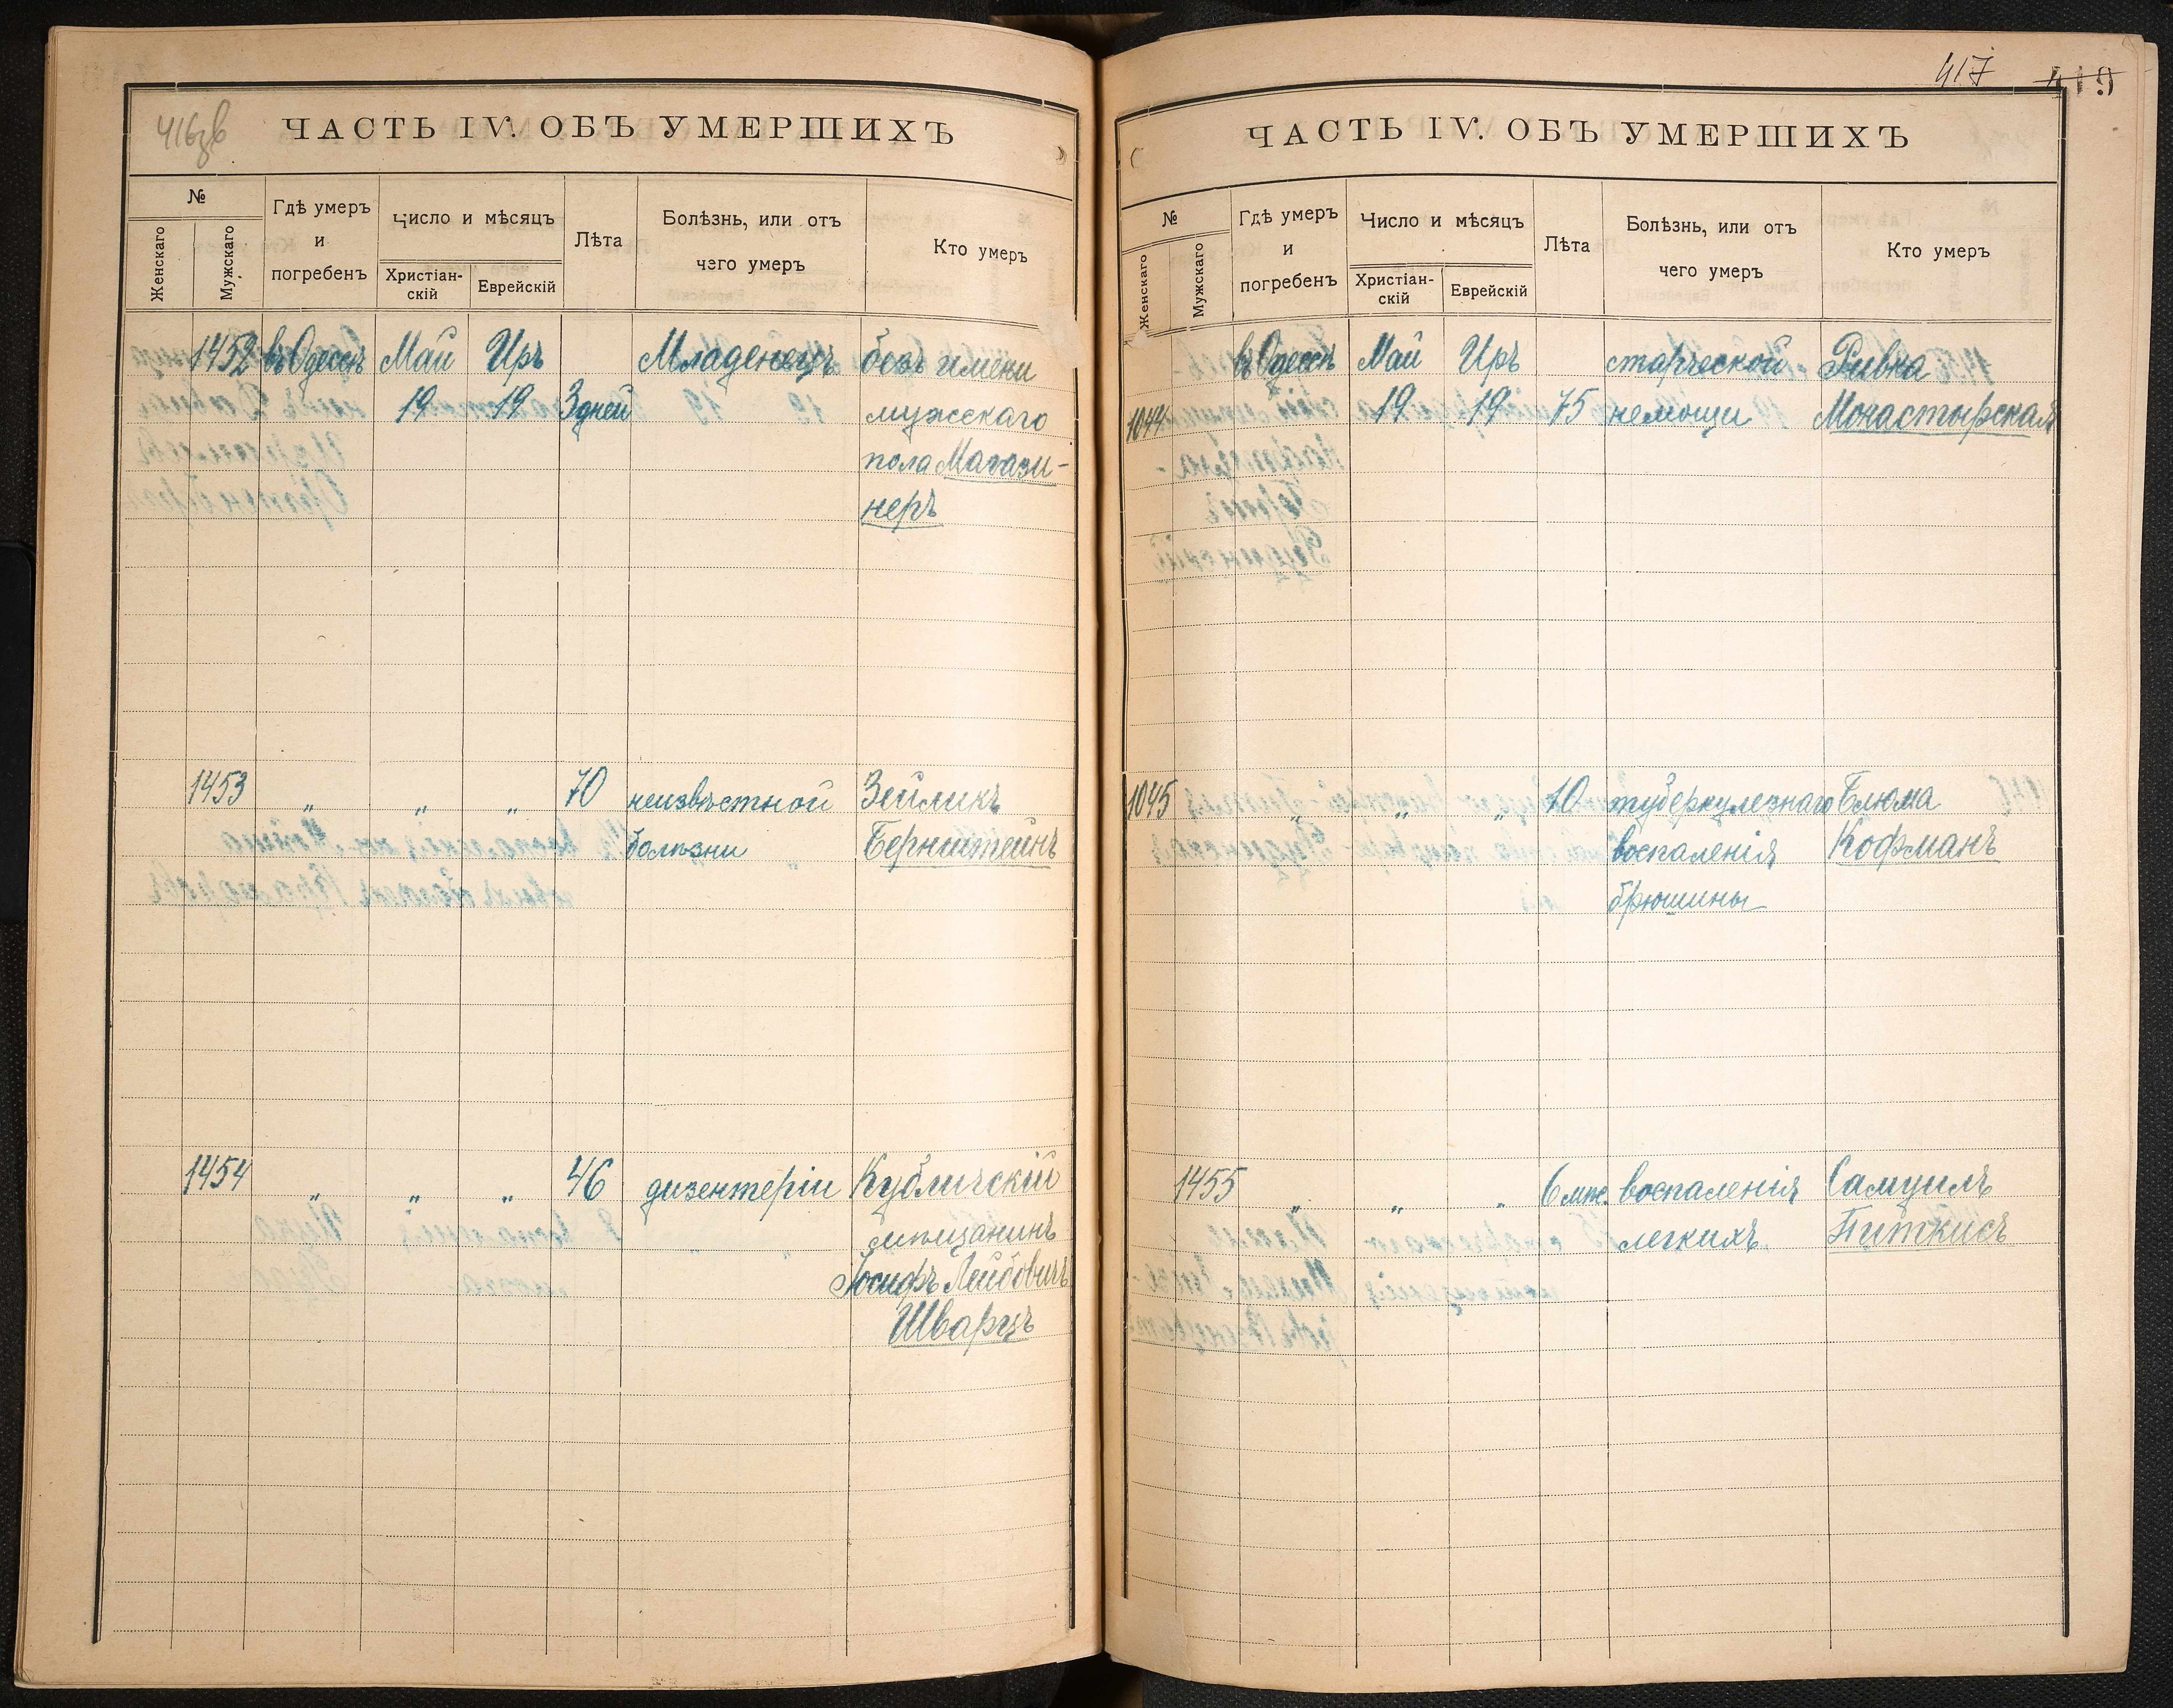 416зв
ЧАСТЬ IV. ОБЪ УМЕРШИХЪ
№
Женскаго
Мужскаго
Гдѣ умеръ
и
погребенъ
Число и мѣсяцъ
Христіан-
скій
Еврейскій
Лѣта
Болѣзнь, или отъ
чего умеръ
Кто умеръ
1452 въ Одессѣ Май Иръ Младенецъ безъ имени
19 19 3 дней мужскаго
пола Магази-
неръ
1453 „ „ „ 70 неизвѣстной Зейликъ
болѣзни Бернштейнъ
1454 „ „ „ 46 дизентеріи Кубличскій
мѣщанинъ
Іосифъ Лейбовичъ
Шварцъ
417 419
ЧАСТЬ IV. ОБЪ УМЕРШИХЪ
№
Женскаго
Мужскаго
Гдѣ умеръ
и
погребенъ
Число и мѣсяцъ
Христіан-
скій
Еврейскій
Лѣта
Болѣзнь, или отъ
чего умеръ
Кто умеръ
въ Одессѣ Май Иръ старческой Ривка
1044 19 19 75 немощи Монастырская
1045 „ „ „ 10 туберкулезнаго Блюма
воспаленія Кофманъ
брюшины
1455 „ „ „ 6 мѣс. воспаленія Самуилъ
легкихъ Питкисъ